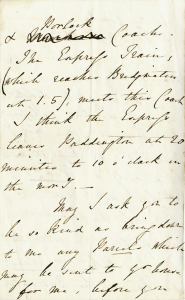 Porlock
& Coach.
The Express Train,
(which reaches Bridgwater
at 1.5), meets this Coach
I think the Express
leaves Paddington at 20
minutes to 10 o'clock in
the morng. —
May I ask you to
be so kind as bring down
to me any Parcel which
may be sent to yo house
for me, before you